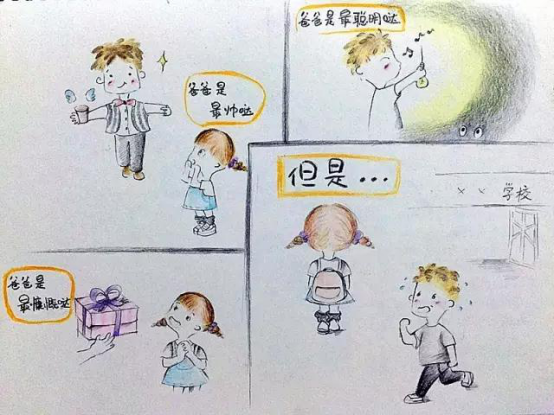 爸爸是
最帅哒
爸爸是最聪明哒
爸爸是
最慷慨哒
但是...
××学校